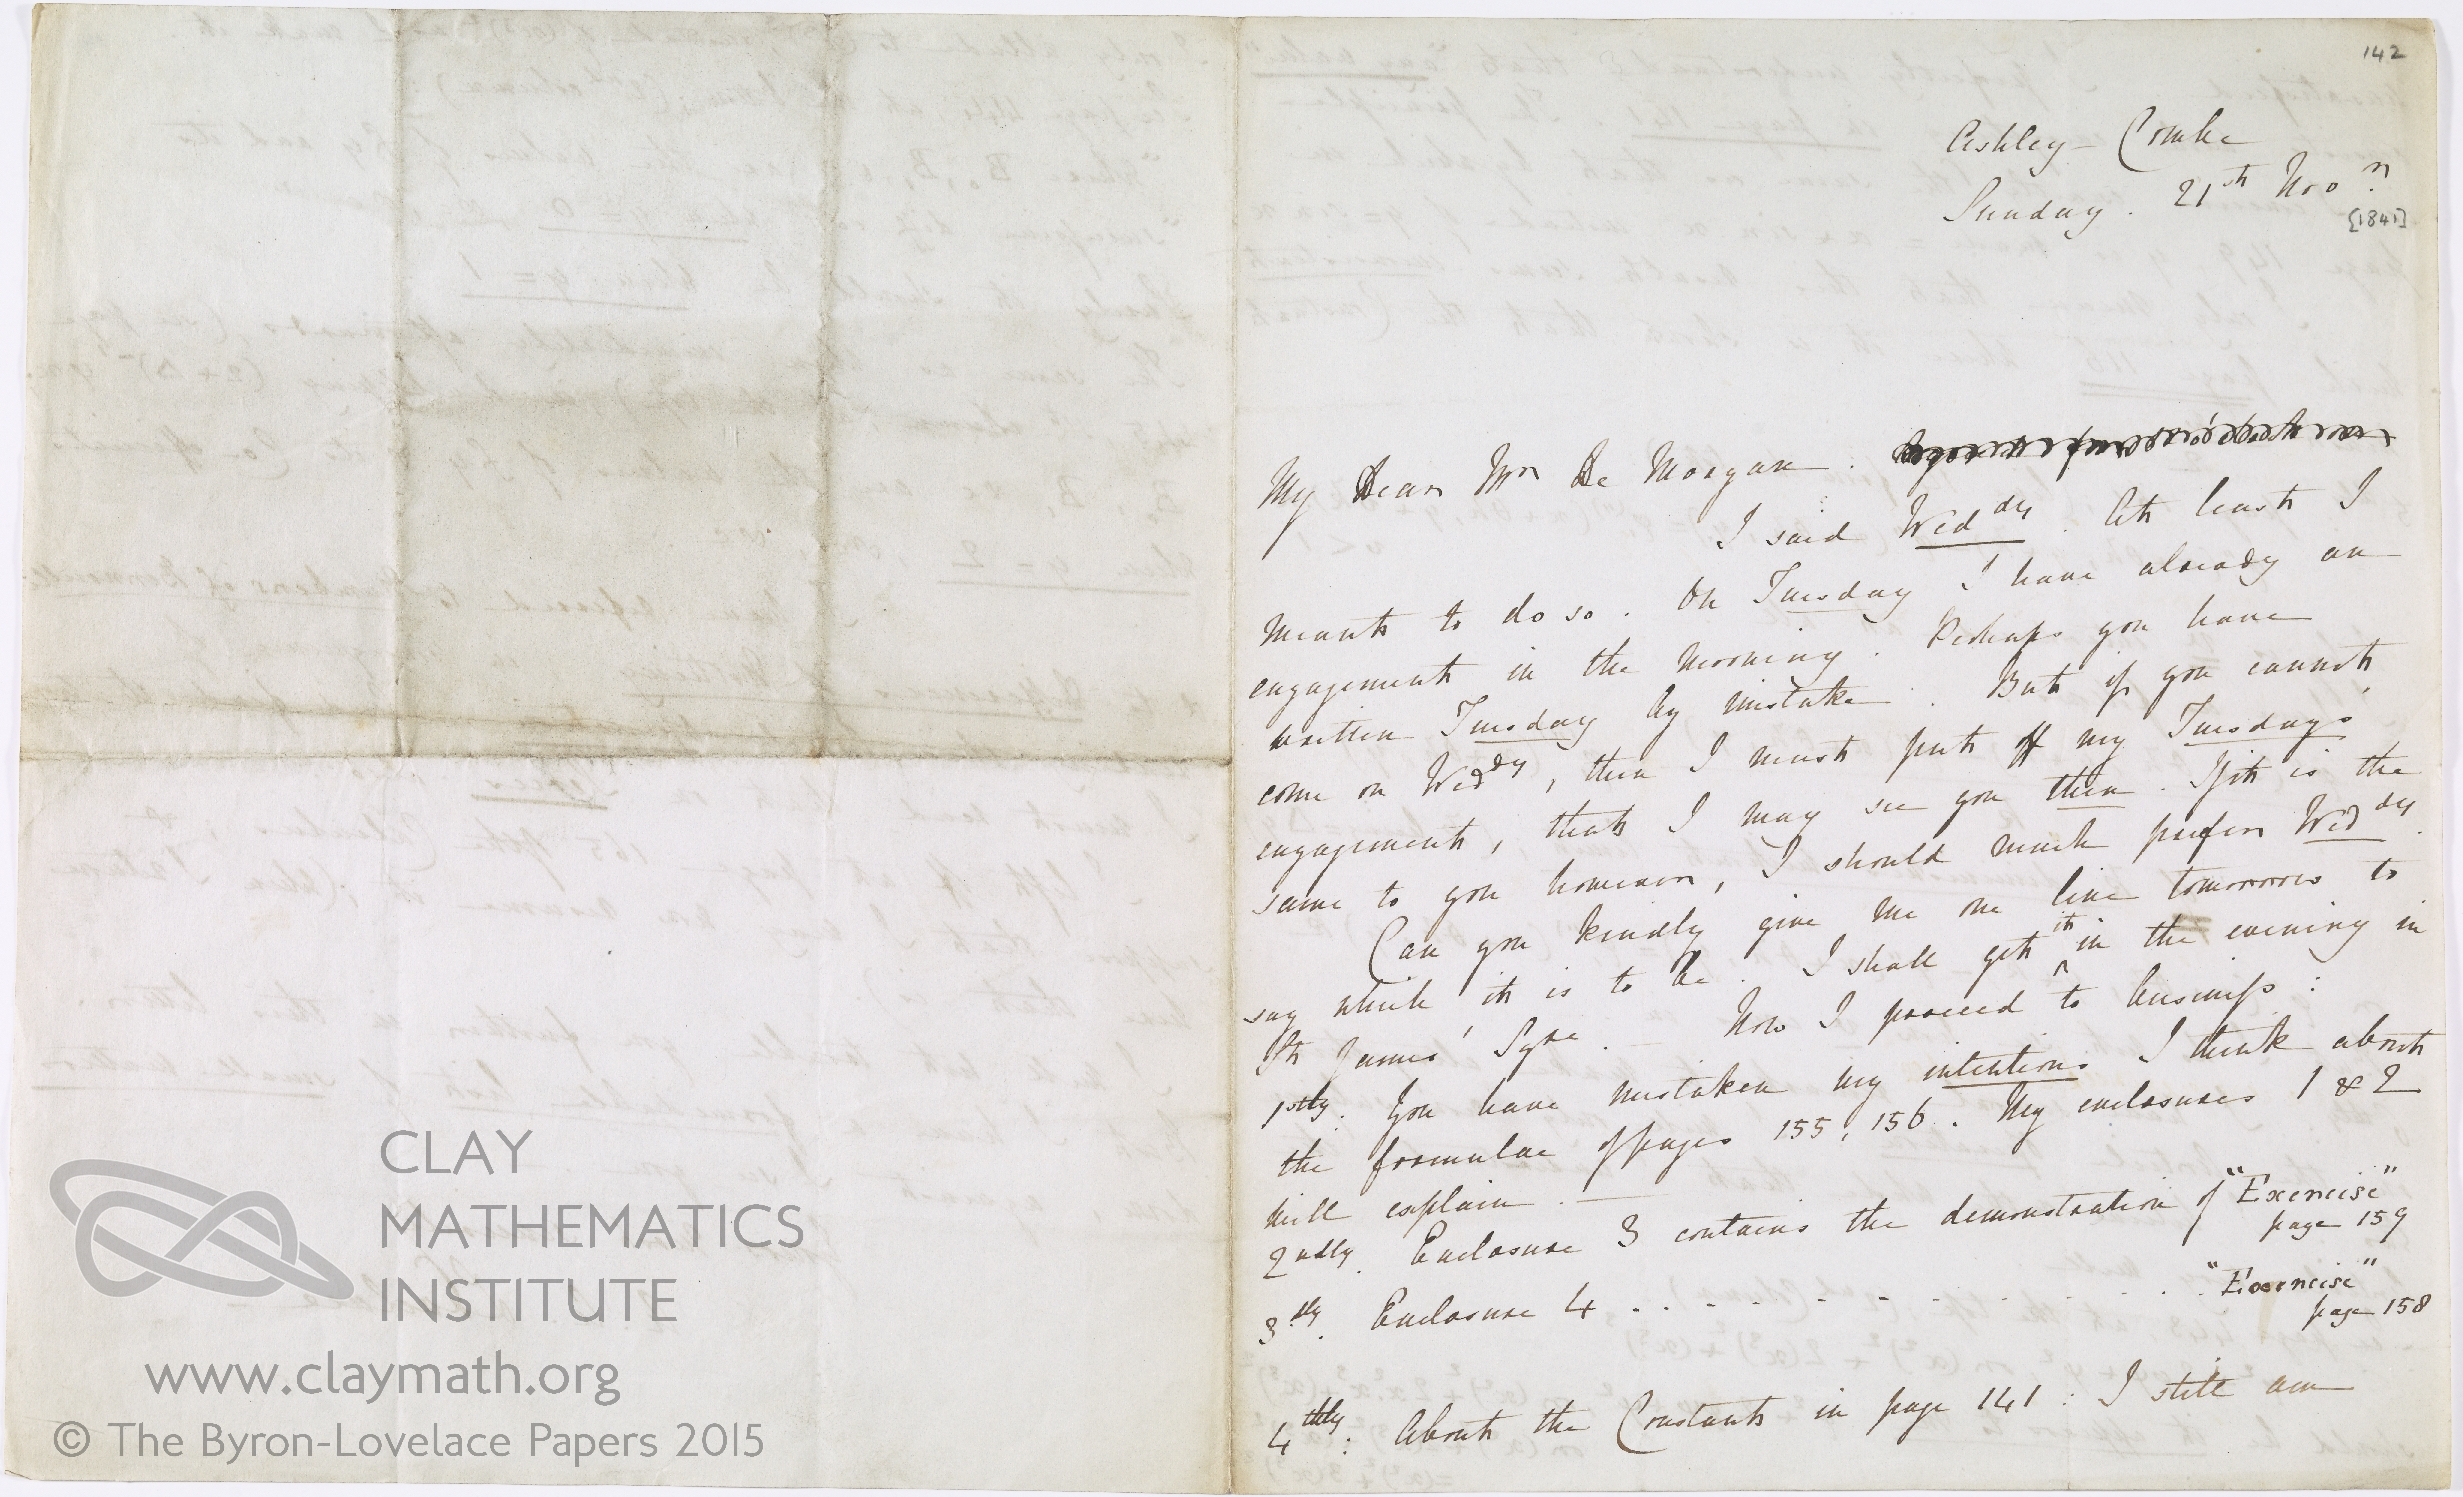 142
Ashley-Combe
Sunday. 21st Novr
[1841]
My Dear Mr De Morgan.
I said Wed.dy. At least I
meant to do so. On Tuesday I have already an
engagement in the morning. Perhaps you have
written Tuesday by mistake. But if you cannot
come on Wed.dy, then I must put off my Tuesday's
engagement, that I may see you then. If it is the
same to you however, I should much prefer Wed.dy.
Can you kindly give me one line tomorrow to
say which it is to be. I shall get it in the evening in
St James' Sqre. Now I proceed to business:
1stly. You have mistaken my intentions I think about
the formulae of pages 155, 156. My enclosures 1 & 2
will explain.—
2ndly. Enclosure 3 contains the demonstration of "Exercise"
page 159
3dly. Enclosure 4 . . - - - - - - - . . . "Exercise"
page 158
4thly: About the Constants in page 141: I still am
CLAY
MATHEMATICS
INSTITUTE
www.claymath.org
© The Byron-Lovelace Papers 2015